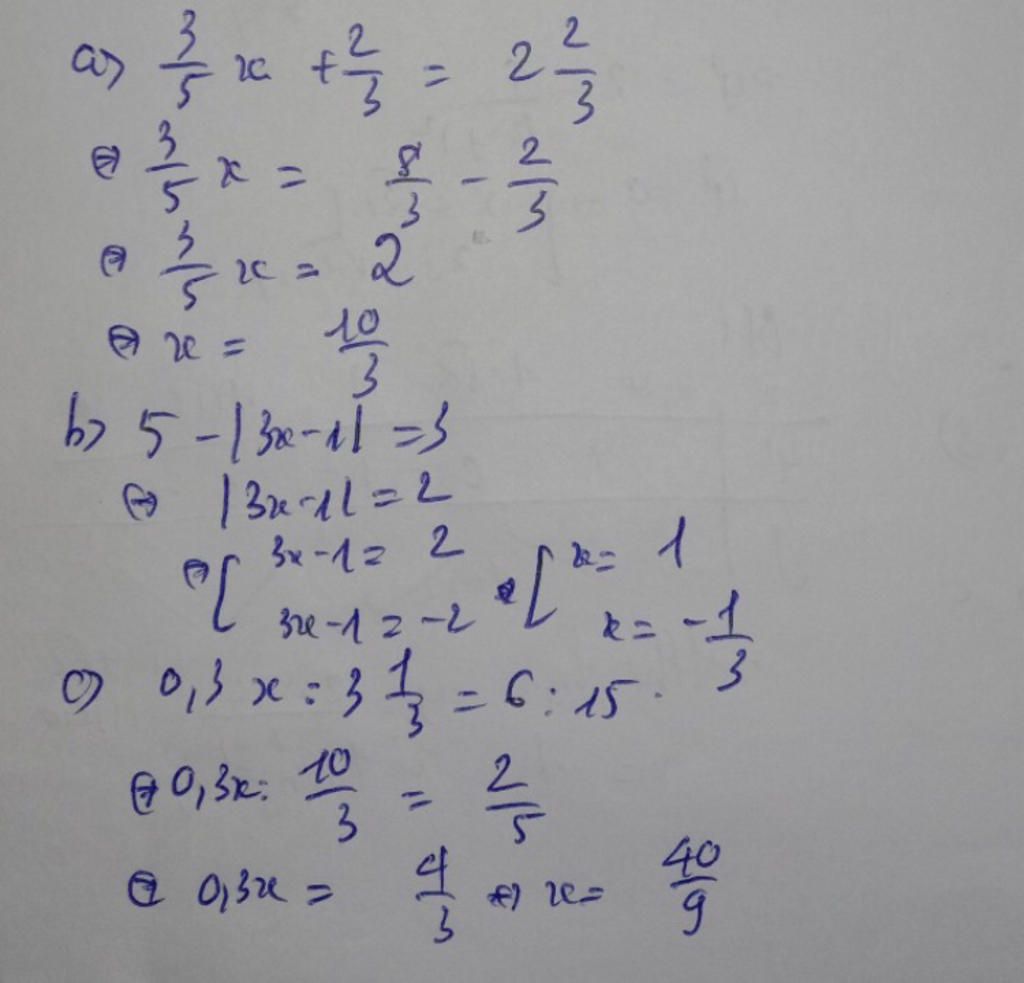 a) 3/5 x + 2/3 = 2 2/3
⇔ 3/5 x = 8/3 - 2/3
⇔ 3/5 x = 2
⇔ x = 10/3
b) 5 - |3x-1| = 3
⇔ |3x-1| = 2
⇔ [ 3x-1 = 2 ⇔ [ x = 1
3x-1 = -2 x = -1/3
c) 0,3 x : 3 1/3 = 6 : 15.
⇔ 0,3x : 10/3 = 2/5
⇔ 0,3x = 4/3 ⇔ x = 40/9